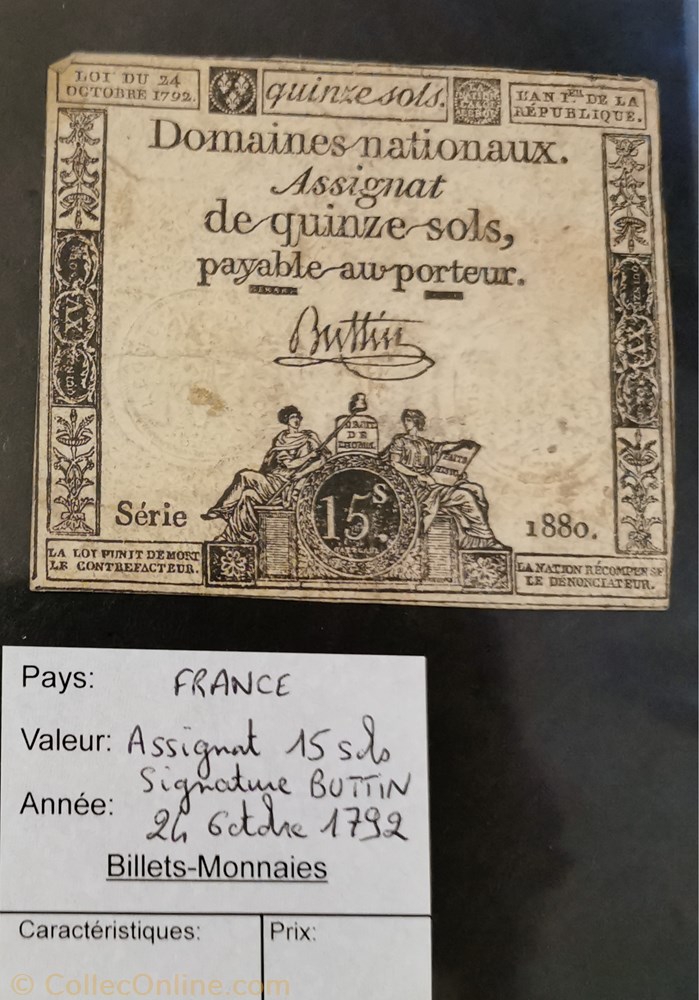 LOI DU 24
OCTOBRE 1792.
quinze sols.
L'AN 1ER DE LA
RÉPUBLIQUE.
Domaines nationaux.
Assignat
de quinze sols,
payable au porteur.
Buttin
DROIT
DE
L'HOMME
15s.
Série
1880.
LA LOI PUNIT DE MORT
LE CONTREFACTEUR.
LA NATION RÉCOMPENSE
LE DÉNONCIATEUR.
XV
XV
Pays: FRANCE
Valeur: Assignat 15 sols
Signature BUTTIN
Année: 24 Octobre 1792
Billets-Monnaies
Caractéristiques:
Prix:
© CollecOnline.com